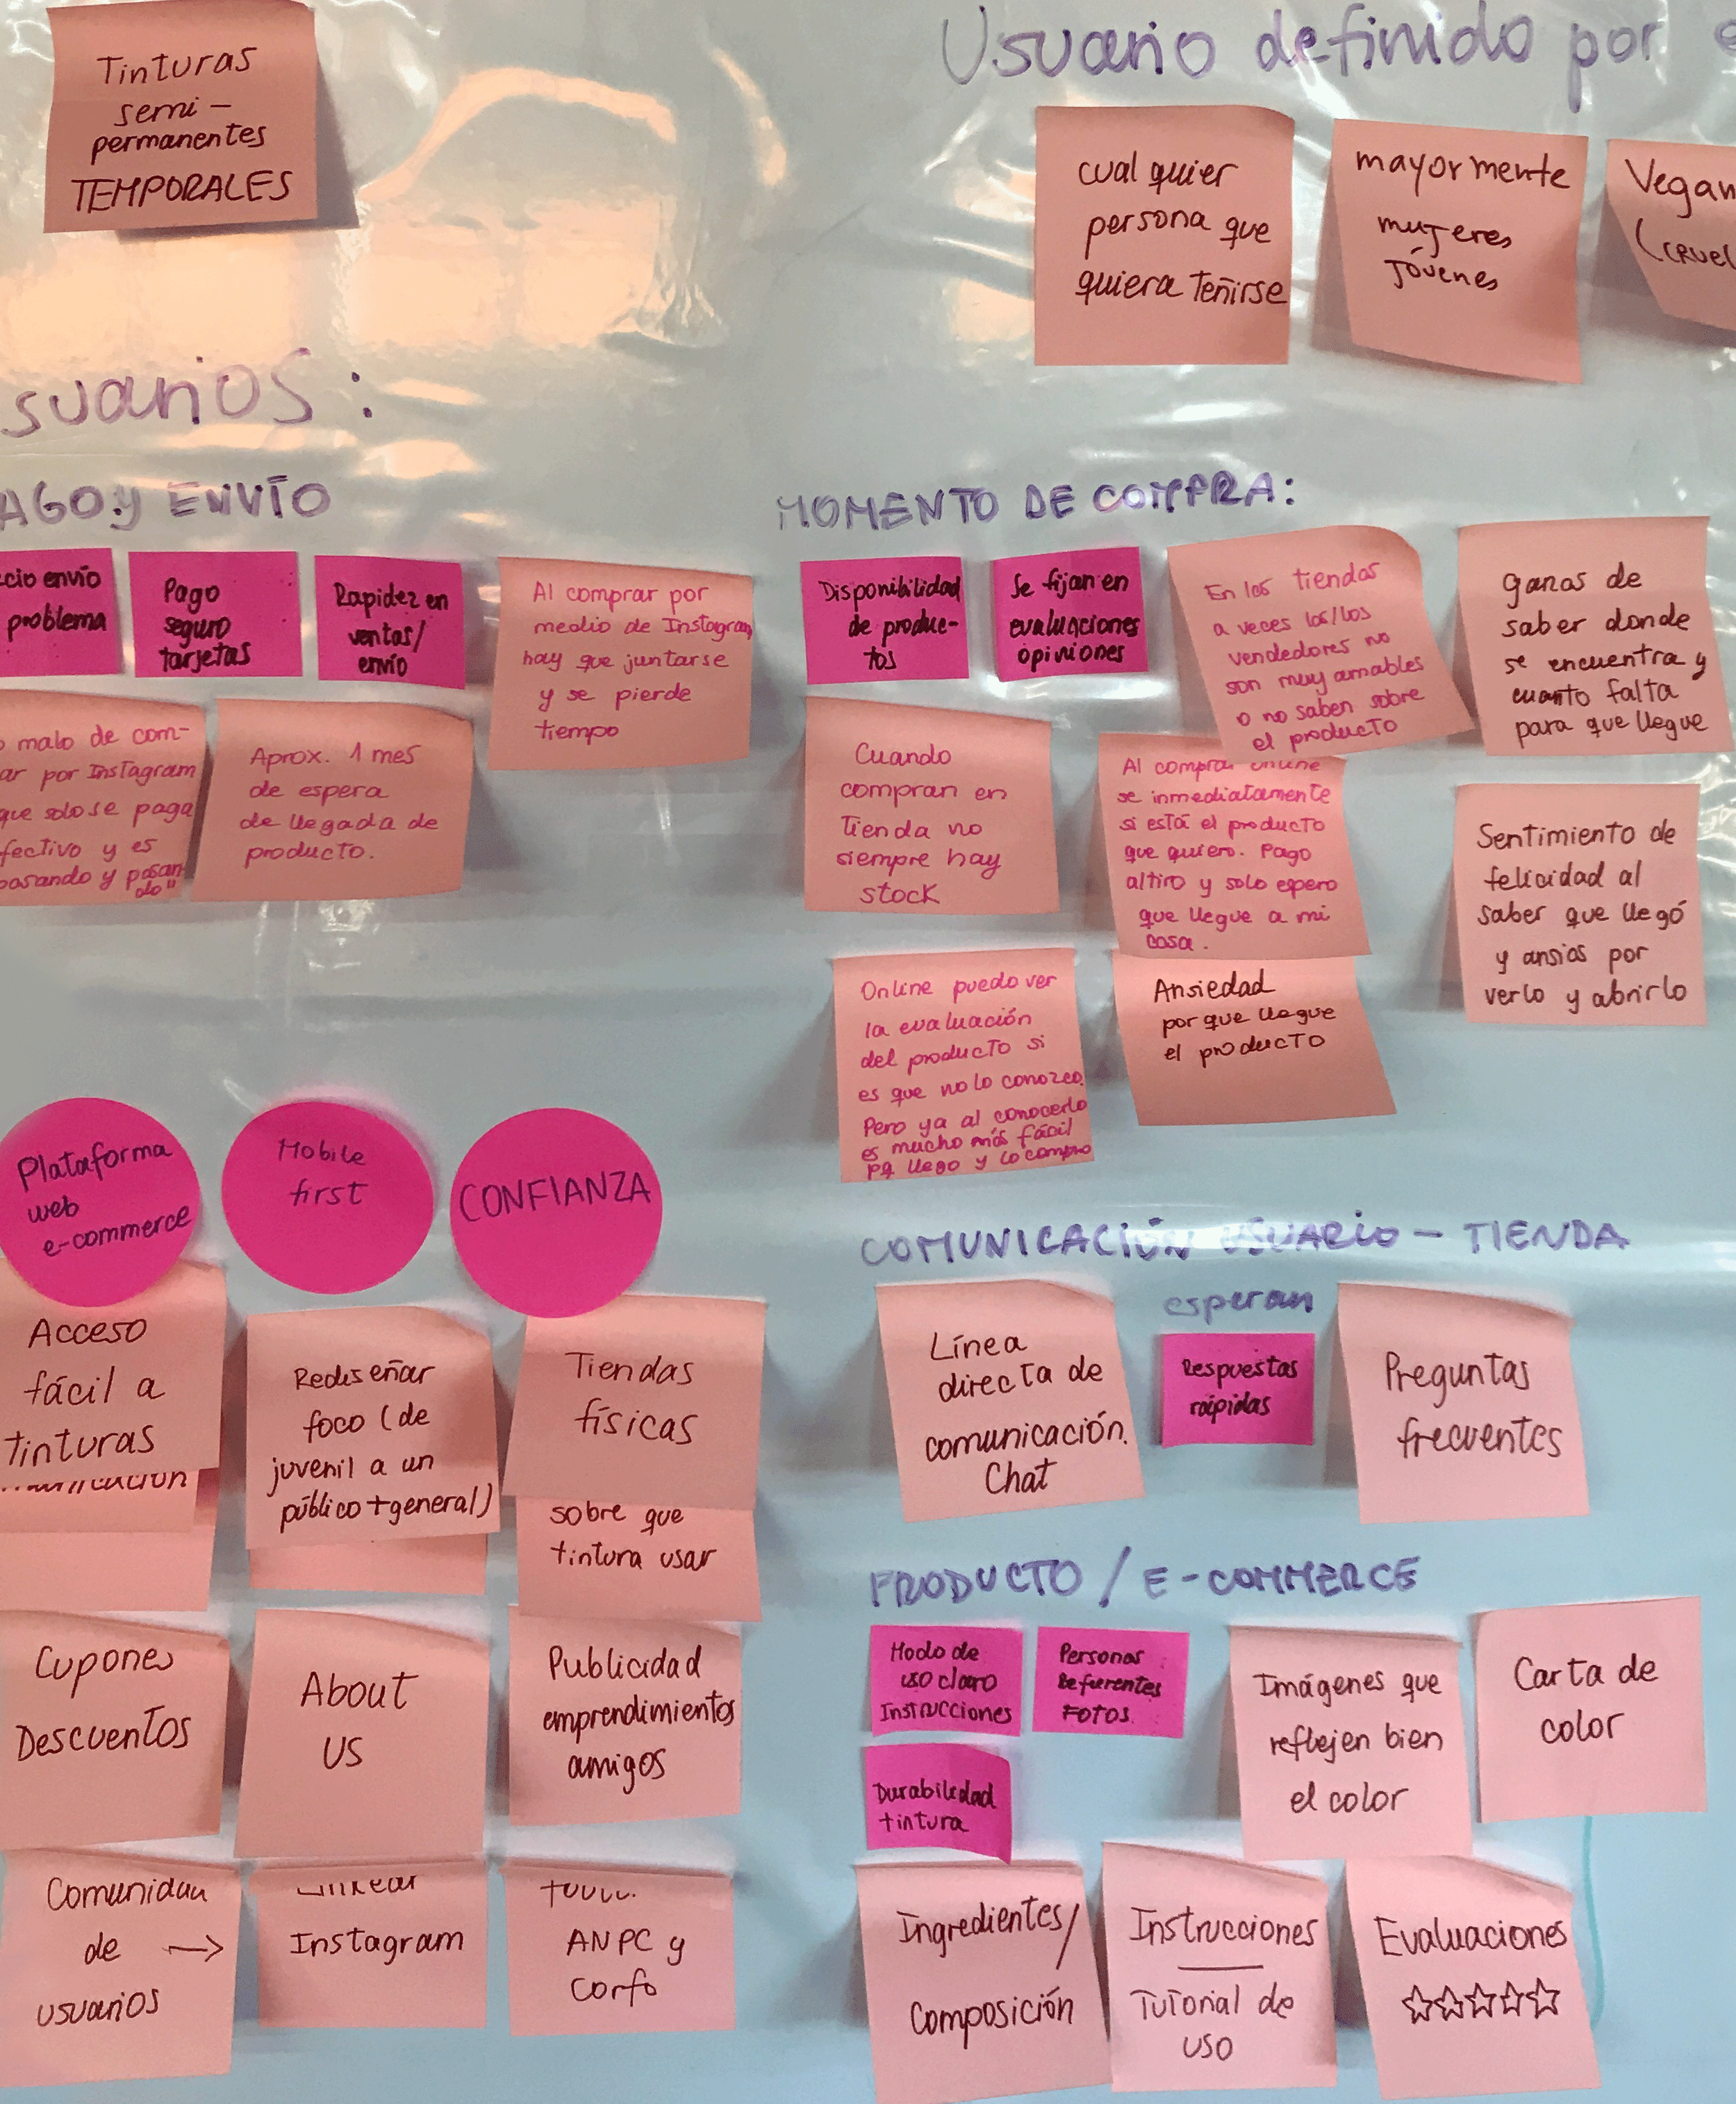 Tinturas
semi-
permanentes
TEMPORALES
Usuario definido por
cualquier
persona que
quiera teñirse
mayormente
mujeres
jóvenes
Vegan
(cruel
suarios:
AGO y ENVÍO
cio envío
problema
Pago
seguro
tarjetas
Rapidez en
ventas/
envío
Al comprar por
medio de Instagram
hay que juntarse
y se pierde
tiempo
malo de com-
ar por Instagram
que solo se paga
fectivo y es
pasando y pasan-
do"
Aprox. 1 mes
de espera
de llegada de
producto.
MOMENTO DE COMPRA:
Disponibilidad
de produc-
tos
Se fijan en
evaluaciones
opiniones
En las tiendas
a veces las/los
vendedores no
son muy amables
o no saben sobre
el producto
ganas de
saber donde
se encuentra y
cuanto falta
para que llegue
Cuando
compran en
tienda no
siempre hay
stock
Al comprar online
se inmediatamente
si está el producto
que quiero. Pago
altiro y solo espero
que llegue a mi
casa.
Sentimiento de
felicidad al
saber que llegó
y ansias por
verlo y abrirlo
Online puedo ver
la evaluación
del producto si
es que no lo conozco.
Pero ya al conocerlo
es mucho más fácil
pq llego y lo compro
Ansiedad
por que llegue
el producto
Plataforma
web
e-commerce
Mobile
first
CONFIANZA
Acceso
fácil a
tinturas
Rediseñar
foco (de
juvenil a un
público + general)
Tiendas
físicas
sobre que
tintura usar
Cupones
Descuentos
About
US
Publicidad
emprendimientos
amigos
Comunidad
de →
usuarios
Instagram
ANPC y
Corfo
COMUNICACIÓN USUARIO - TIENDA
Línea
directa de
comunicación.
Chat
esperan
Respuestas
rápidas
Preguntas
frecuentes
PRODUCTO / E-COMMERCE
Modo de
uso claro
Instrucciones
Personas
Referentes
FOTOS.
Durabilidad
tintura
Imágenes que
reflejen bien
el color
Carta de
color
Ingredientes/
Composición
Instrucciones
Tutorial de
uso
Evaluaciones
☆☆☆☆☆